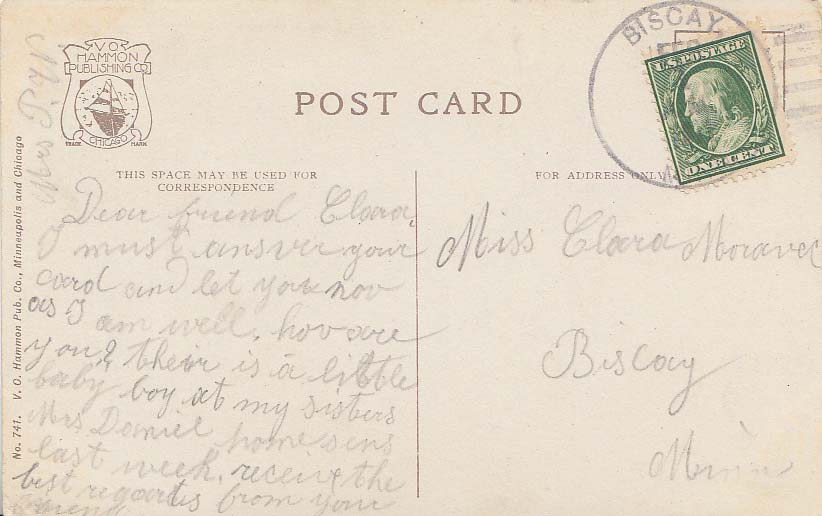 V.O.
HAMMON
PUBLISHING CO
CHICAGO
TRADE MARK
POST CARD
BISCAY
U.S. POSTAGE
ONE CENT
THIS SPACE MAY BE USED FOR
CORRESPONDENCE
FOR ADDRESS ONLY
No. 741. V. O. Hammon Pub. Co., Minneapolis and Chicago
Mrs
Dear friend Clara,
I must answer your
card and let you nov
as I am well. hov are
you? their is a little
baby boy at my sisters
Mrs Daniel home sins
last week. receive the
best regards from your
friend
Miss Clara Moravec
Biscay
Minn